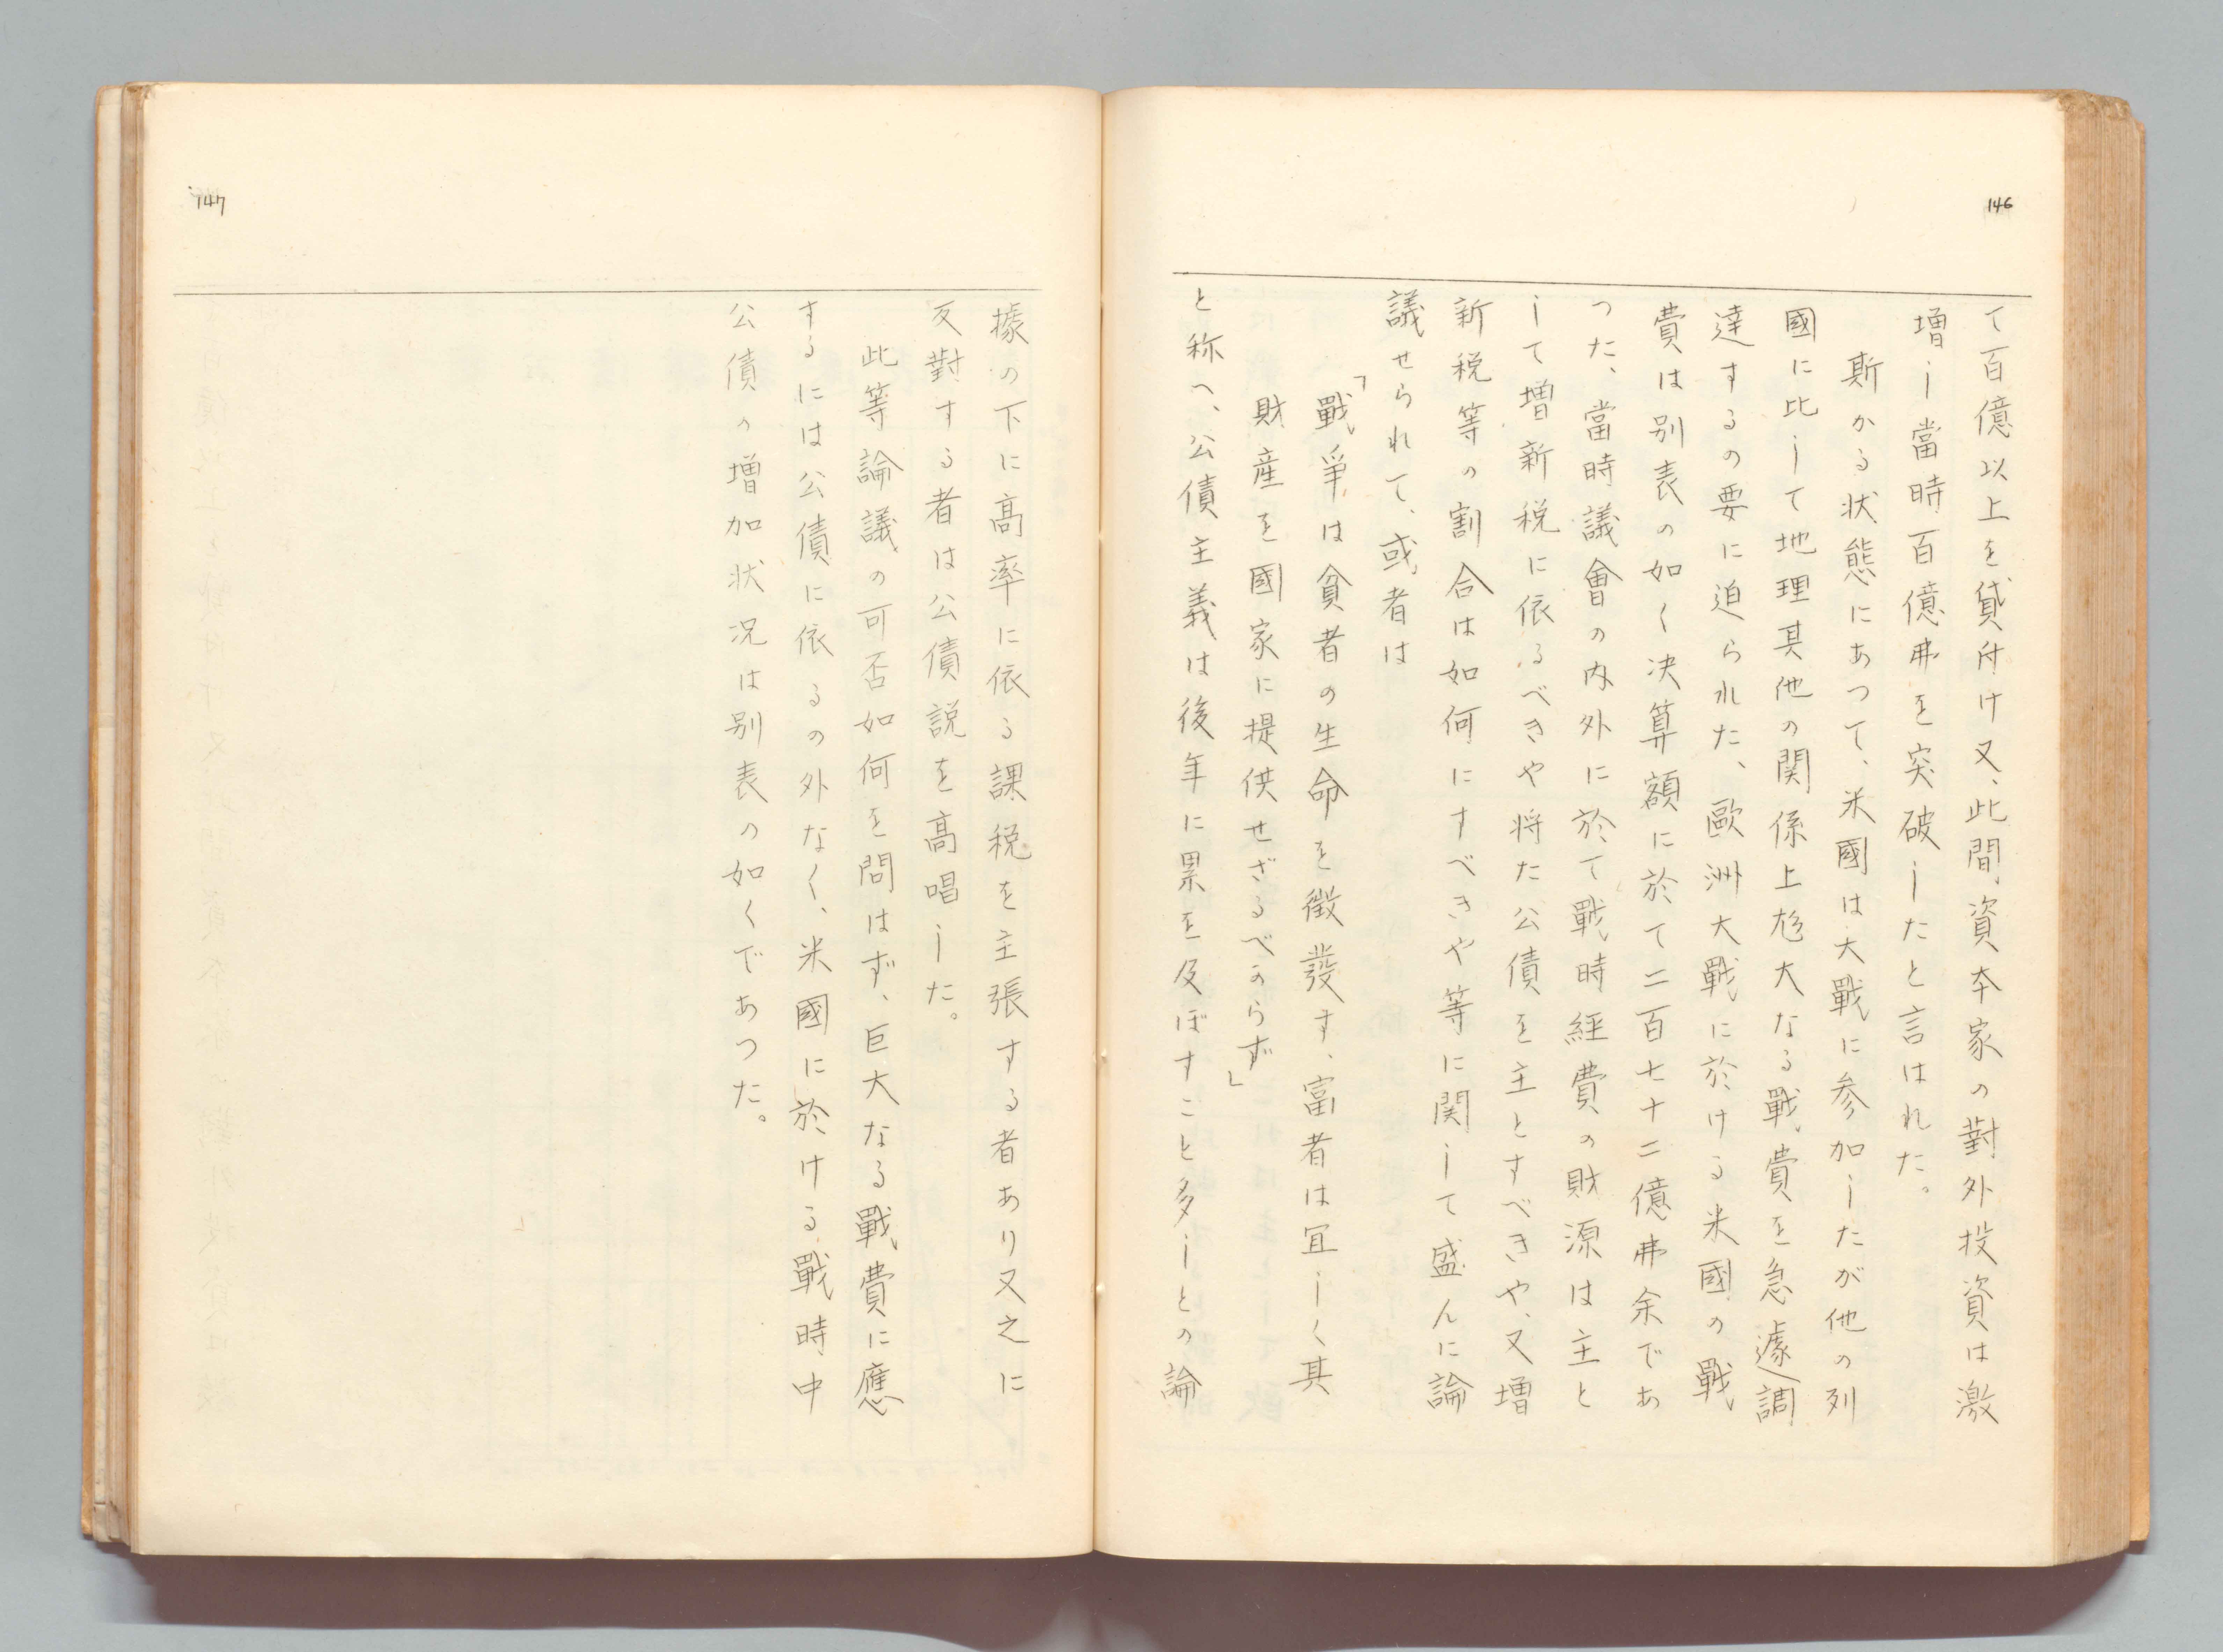 146
て百億以上を貸付け又、此間資本家の對外投資は激
増し當時百億弗を突破したと言はれた。
斯かる状態にあつて、米國は大戰に参加したが他の列
國に比して地理其他の関係上尨大なる戰費を急遽調
達するの要に迫られた、歐洲大戰に於ける米國の戰
費は別表の如く決算額に於て二百七十二億弗余であ
つた、當時議會の内外に於て戰時經費の財源は主と
して増新税に依るべきや将た公債を主とすべきや、又増
新税等の割合は如何にすべきや等に関して盛んに論
議せられて、或者は
「戰爭は貧者の生命を徴發す、富者は宜しく其
財産を國家に提供せざるべからず」
と称へ、公債主義は後年に累を及ぼすこと多しとの論
147
據の下に高率に依る課税を主張する者あり又之に
反對する者は公債説を高唱した。
此等論議の可否如何を問はず、巨大なる戰費に應
するには公債に依るの外なく、米國に於ける戰時中
公債の増加状況は別表の如くであつた。